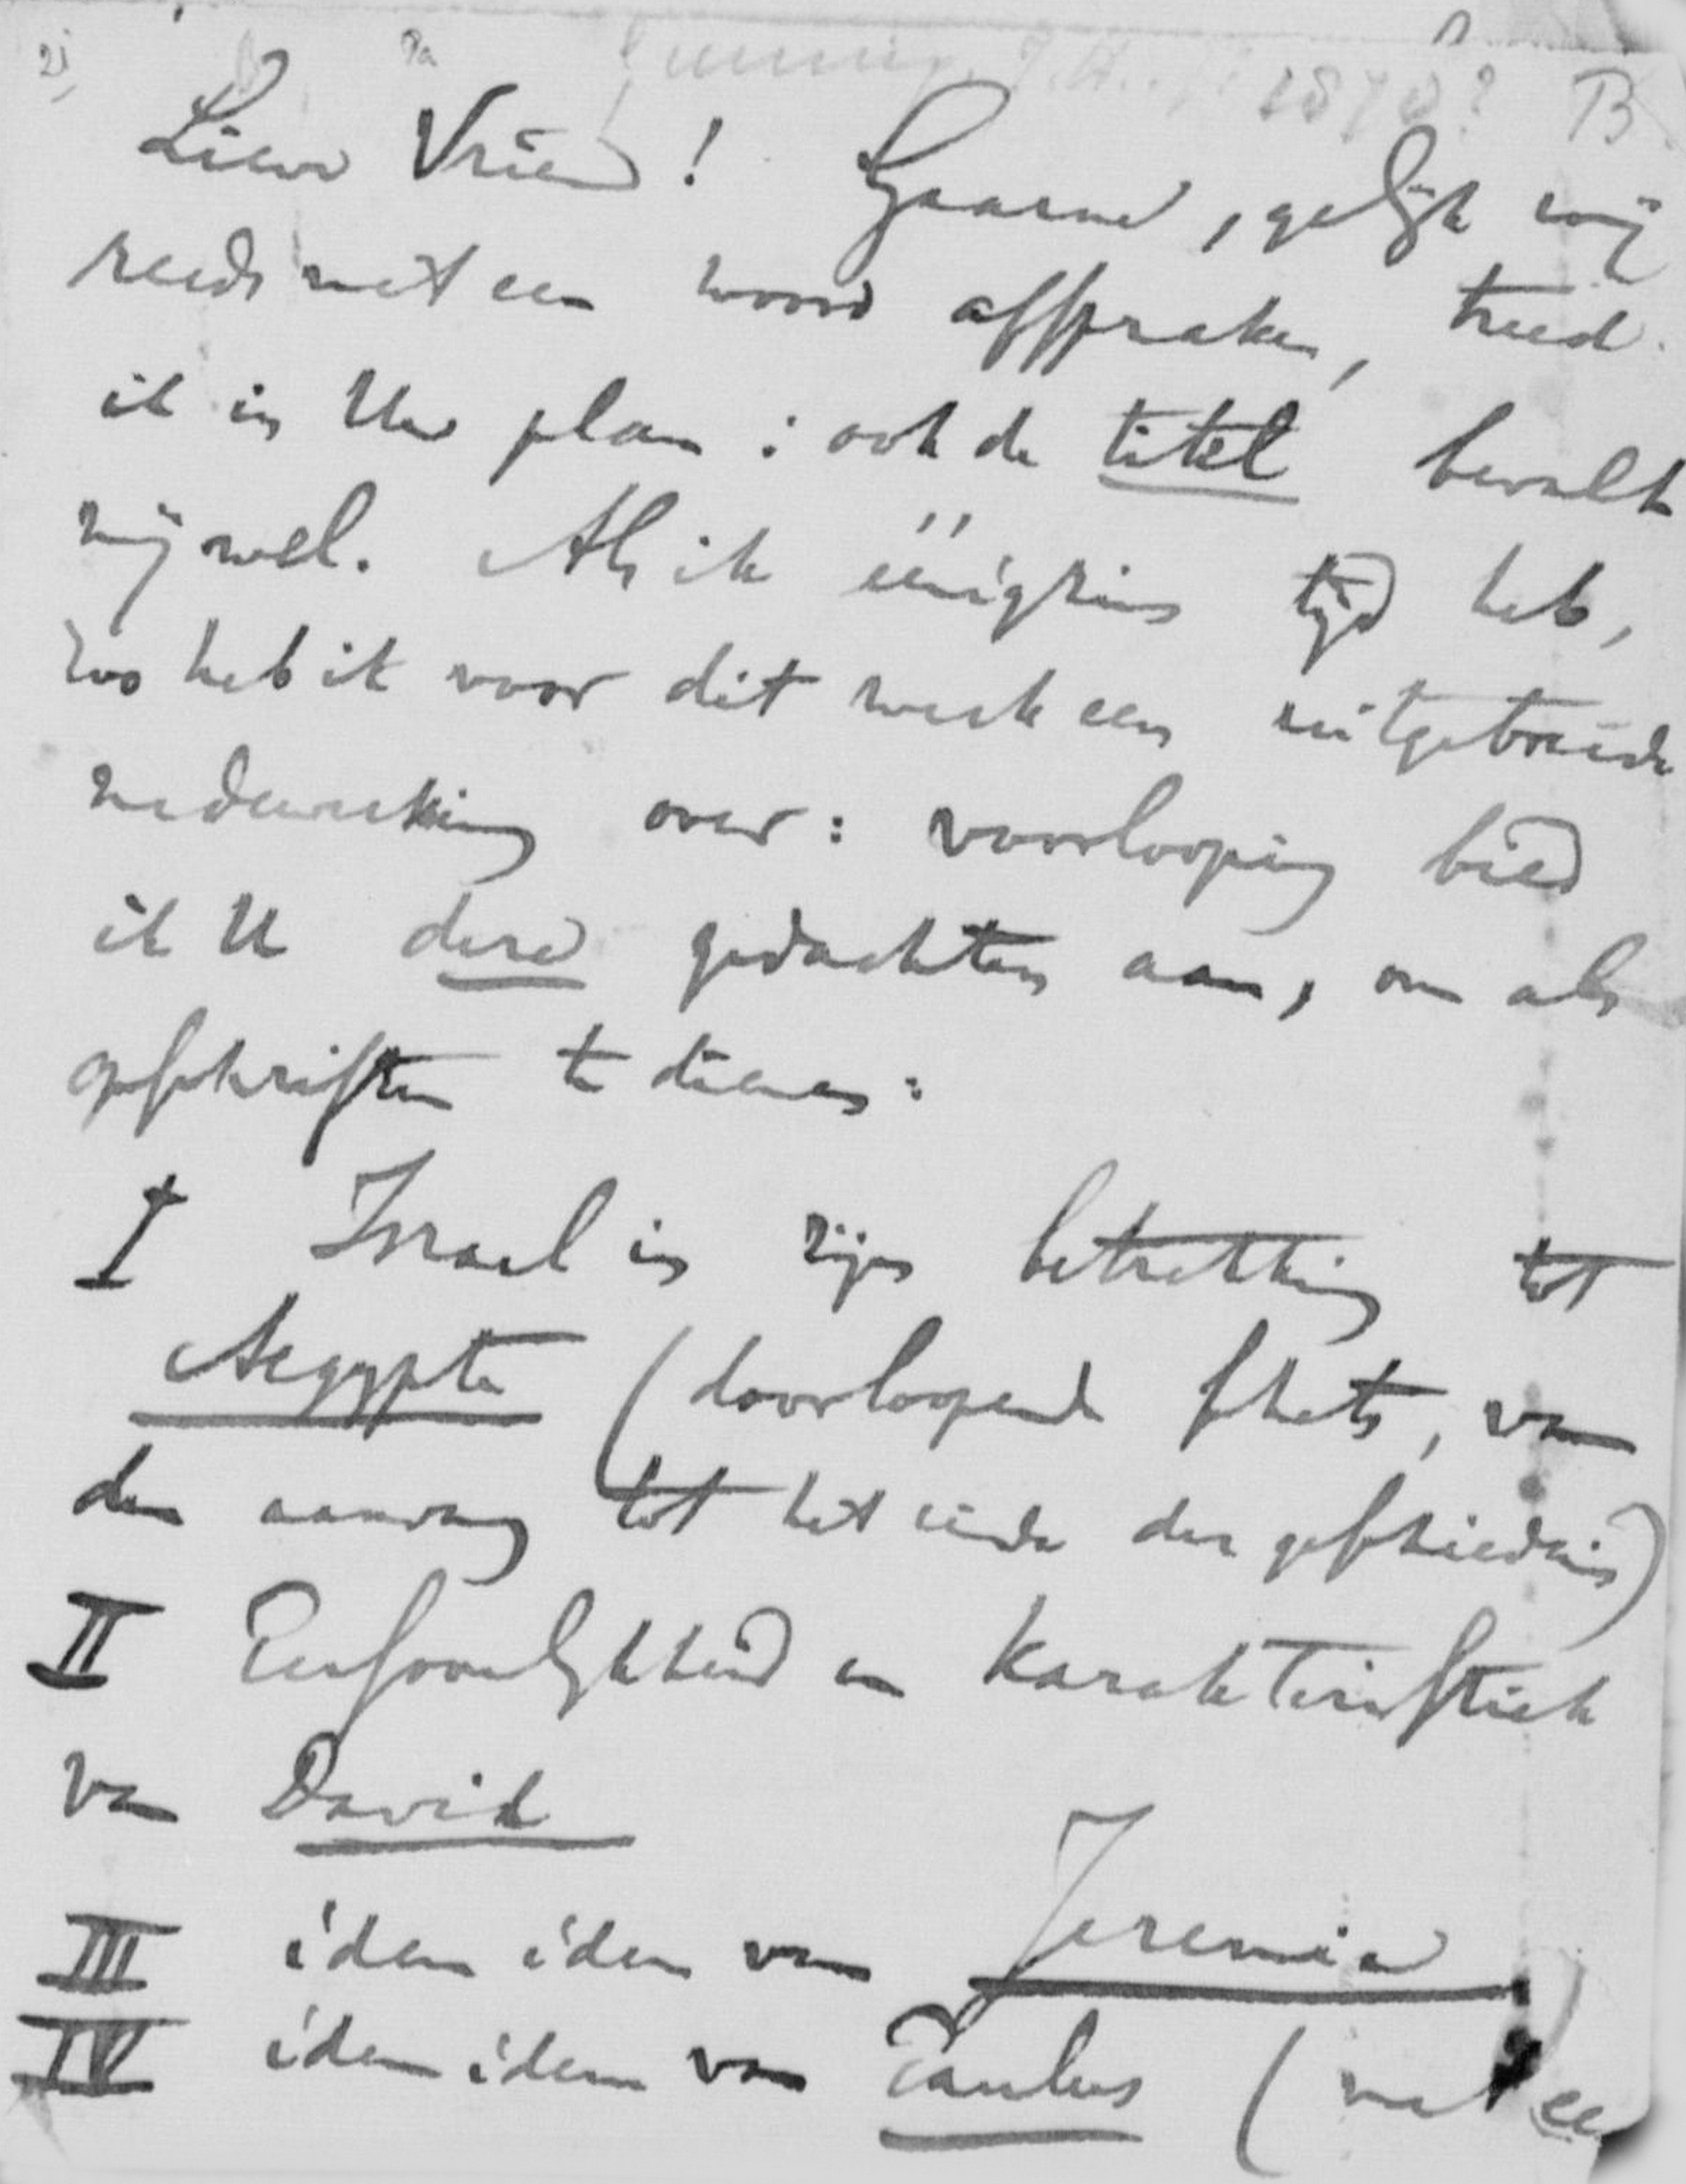 1878? B
Lieve Vriend! Gaarne, gelijk wij
reeds met een woord afspraken, treed
ik in Uw plan: ook de titel bevalt
mij wel. Als ik éénigzins tijd heb,
zoo heb ik voor dit werk een uitgebreide
medewerking over: voorloopig bied
ik U deze gedachten aan, om als
opschriften te dienen:
I Israel in zijn betrekking tot
Aegypte (doorloopende schets, van
den aanvang tot het einde der geschiedenis)
II Persoonlijkheid en Karakteristiek
van David
III idem idem van Jeremia
IV idem idem van Paulus (met een